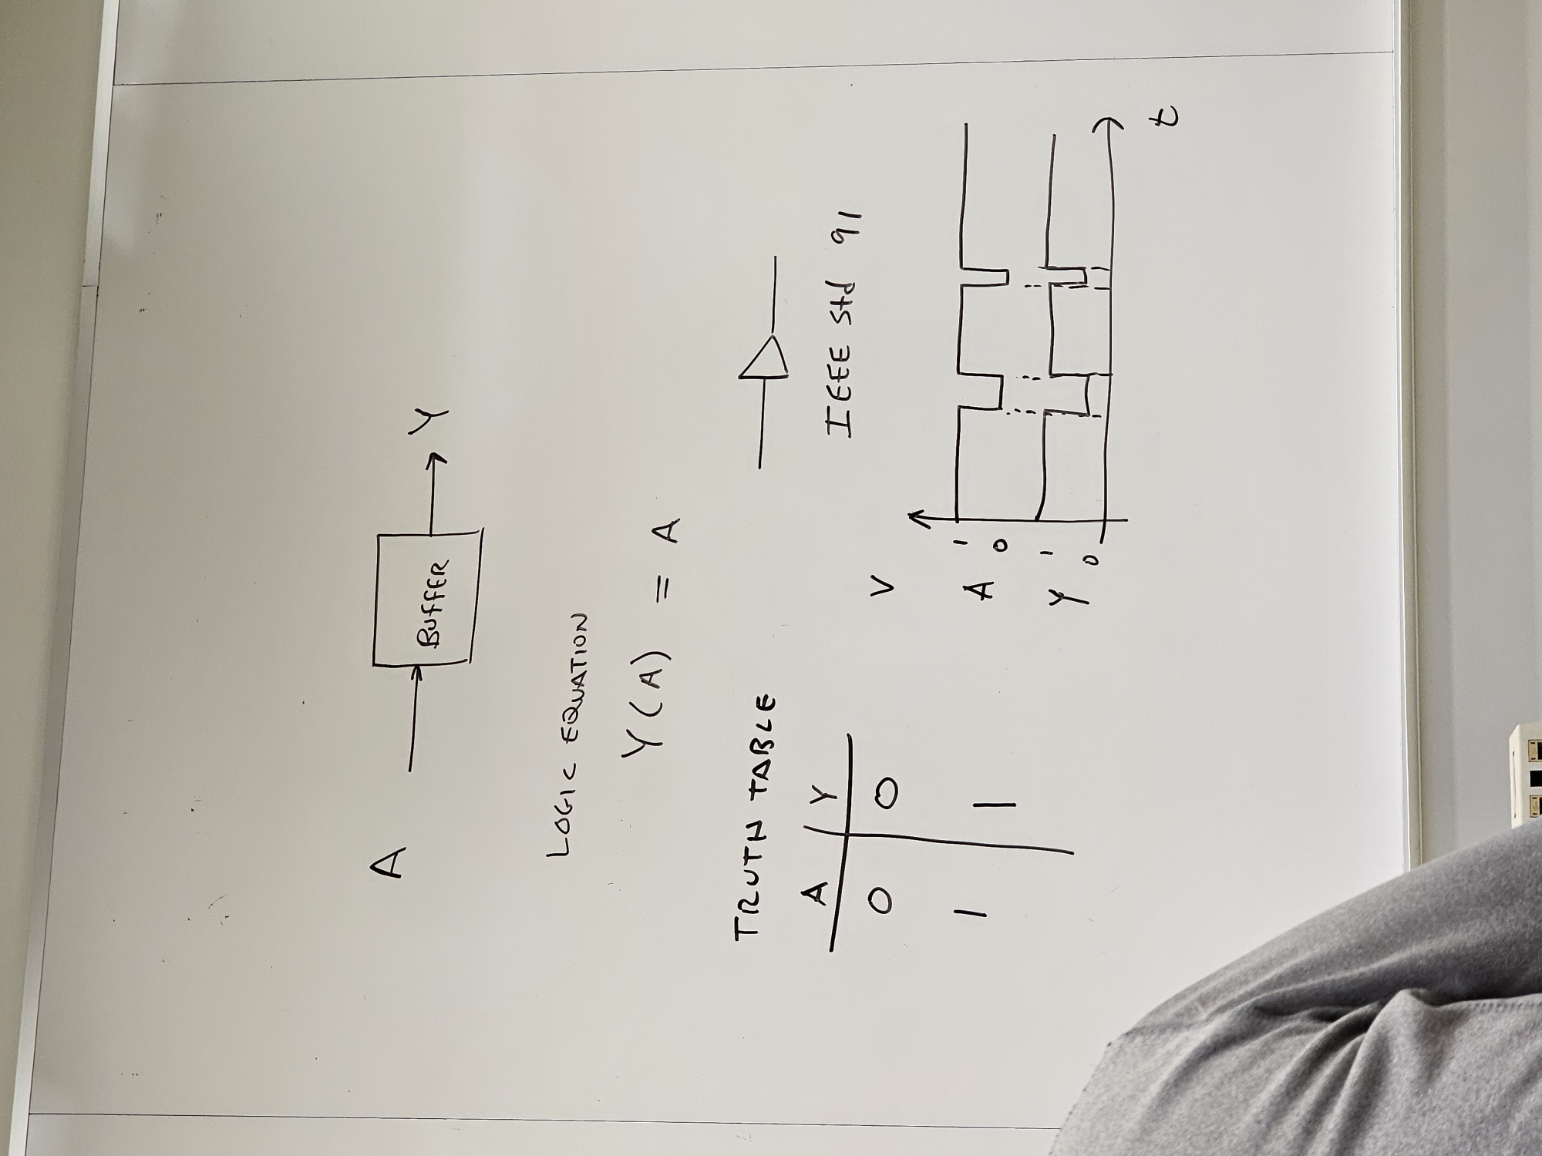 A
BUFFER
Y
LOGIC EQUATION
Y(A) = A
TRUTH TABLE
A Y
0 0
1 1
IEEE Std 91
V
A 1
0
Y 1
0
t